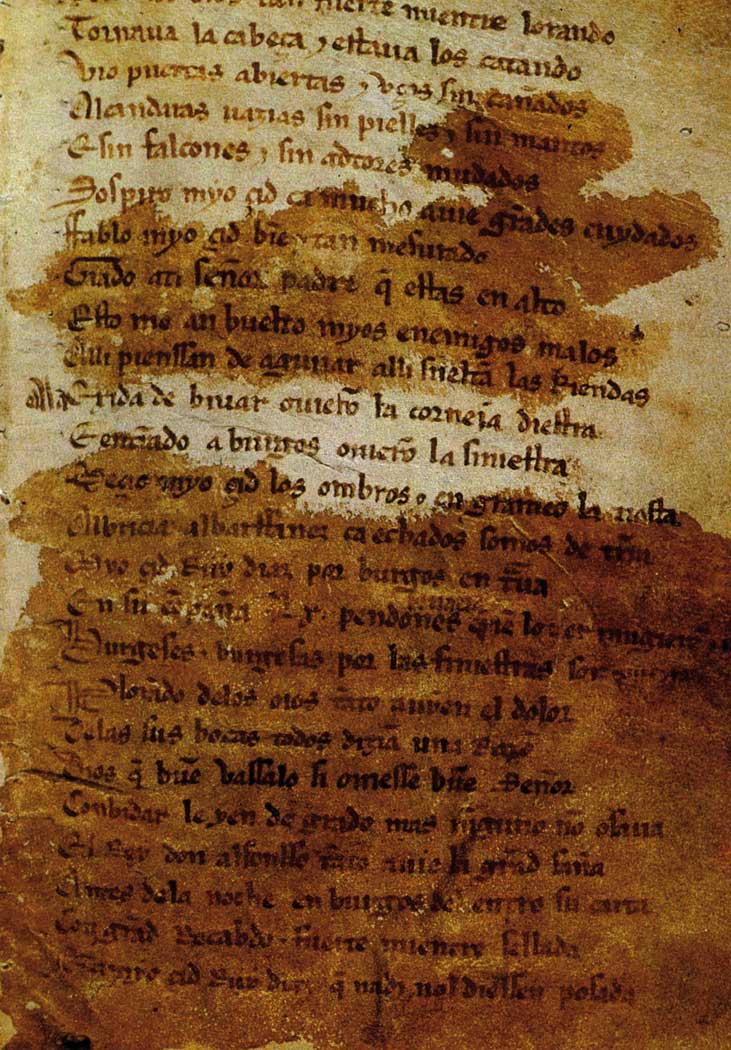 De los sos oios tan fuerte mientre lorando
Tornaua la cabeça ⁊ estaua los catando
Vio puertas abiertas ⁊ vços sin cañados
Alcandaras uazias sin pielles ⁊ sin mantos
E sin falcones ⁊ sin adtores mudados
Sospiro myo çid ca mucho auie grãdes cuydados
ffablo myo çid biẽ ⁊ tan mesurado
Grado ati señor padre q̃ estas en alto
Esto me an buelto myos enemigos malos
Alli pienssan de aguiiar alli sueltã las Riendas
Ala Exida de biuar ouierõ la corneia diestra
E entrãdo a burgos ouierõ la siniestra
Meçio myo çid los ombros ⁊ engrameo la tiesta
Albricia albarffanez ca echados somos de trr̃a
Myo çid Ruy diaz por burgos en traua
En su cõpaña .Lx. pendones
Burgeses ⁊ burgesas por las finiestras son
Plorãdo delos oios tãto auyen el dolor
Delas sus bocas todos diziã una Razõ
Dios q̃ buẽ vassalo si ouiesse buẽ Señor
Conbidar le yen de grado mas ninguno nõ osaua
El Rey don alfonsso tãto auie la grãd saña
Antes dela noche en burgos del entro su carta
Con grãd Recabdo ⁊ fuerte mientre sellada
Q̃ a myo çid Ruy diaz q̃ nadi nol diessen posada